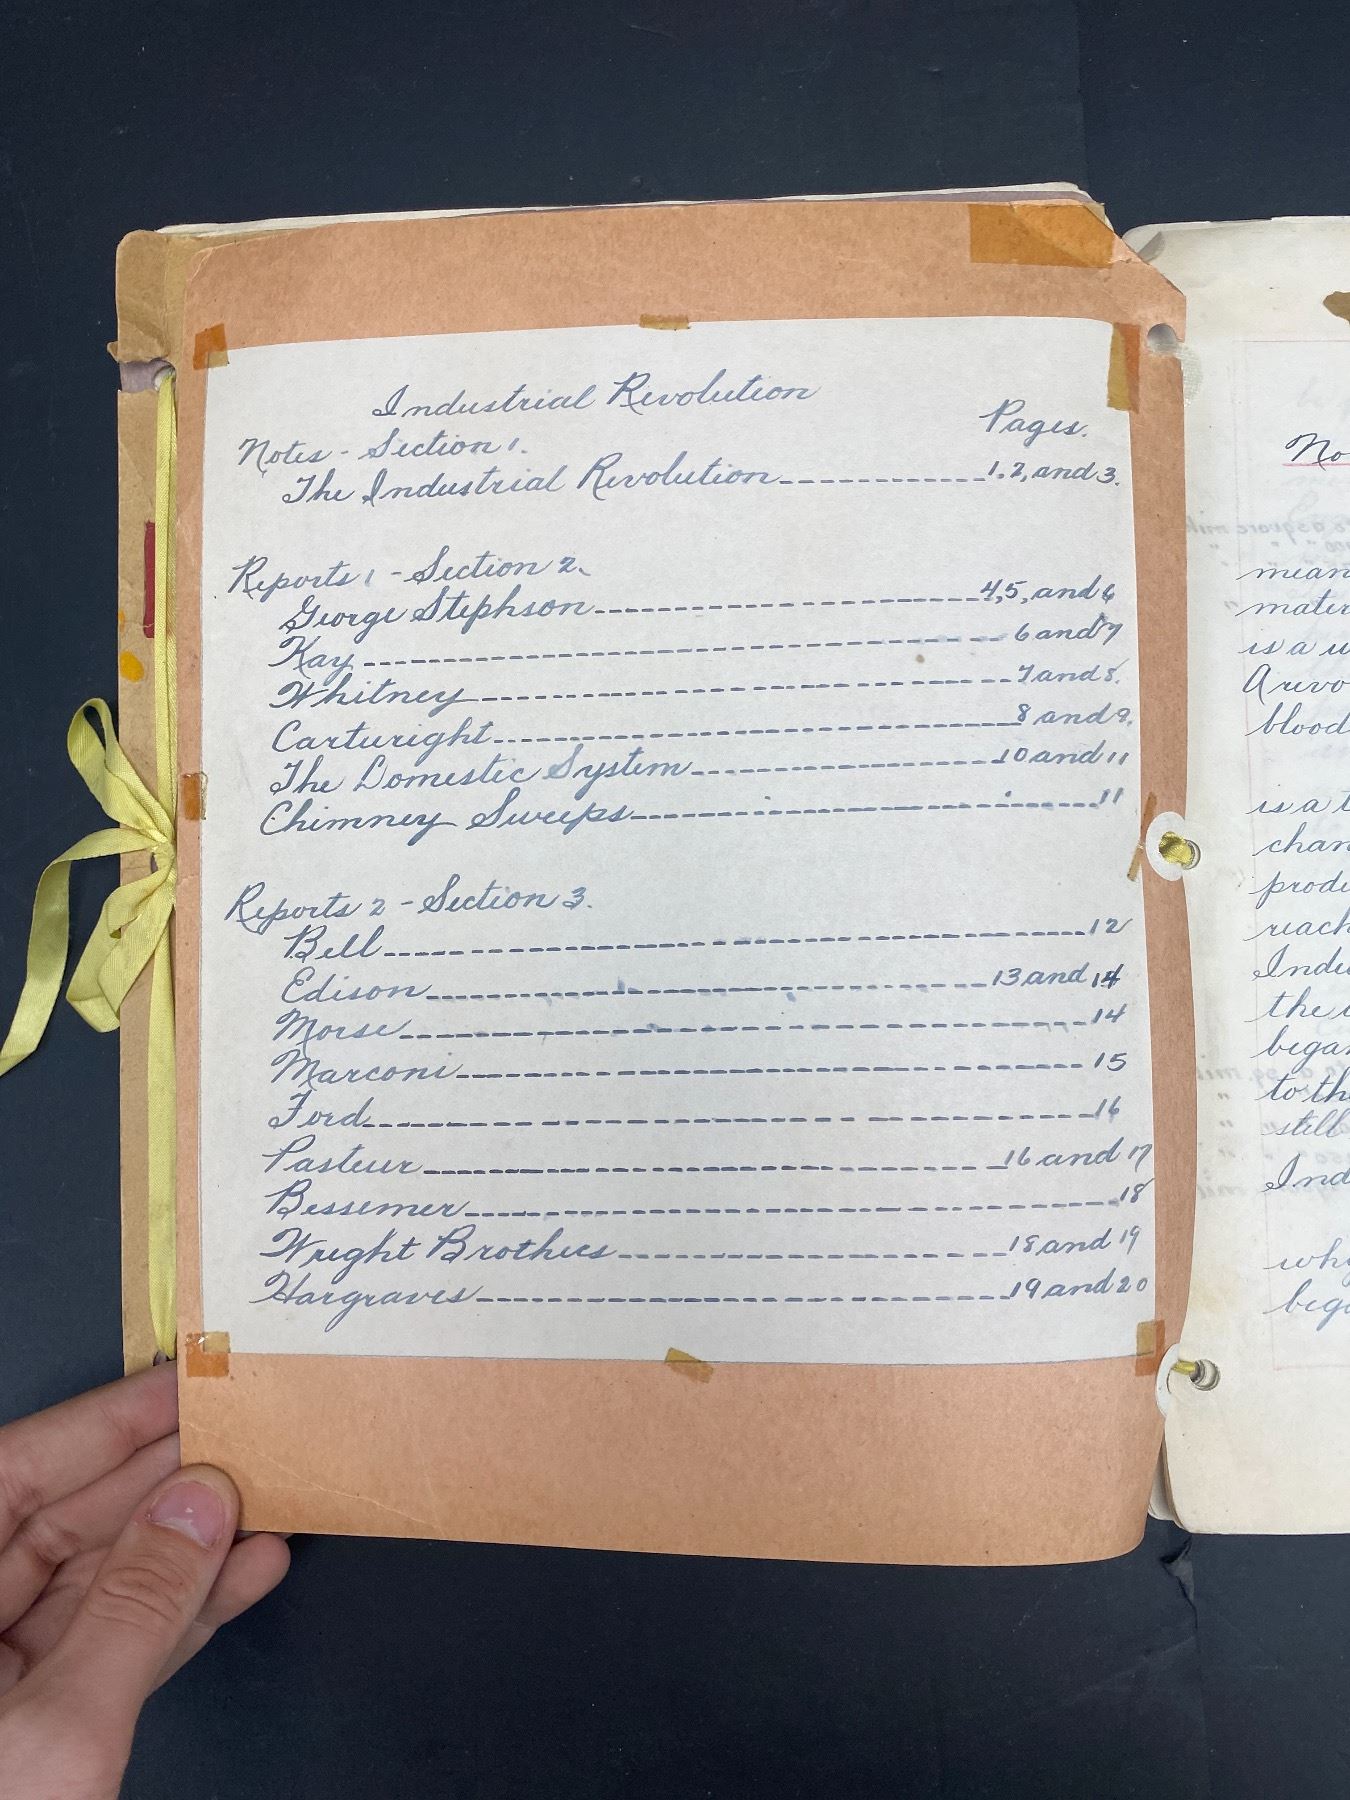 Industrial Revolution
Pages.
Notes - Section 1.
The Industrial Revolution------------1,2, and 3.
Reports 1 - Section 2.
George Stephson------------------4,5, and 6
Kay------------------6 and 7
Whitney------------------7 and 8.
Cartwright------------------8 and 9.
The Domestic System------------------10 and 11
Chimney Sweeps------------------11
Reports 2 - Section 3.
Bell------------------12
Edison------------------13 and 14
Morse------------------14
Marconi------------------15
Ford------------------16
Pasteur------------------16 and 17
Bessemer------------------18
Wright Brothers------------------18 and 19
Hargraves------------------19 and 20
No
mean
mater
is a w
A revo
blood
is a t
chan
produ
reach
Indu
the i
began
to the
still
Ind
why
bega